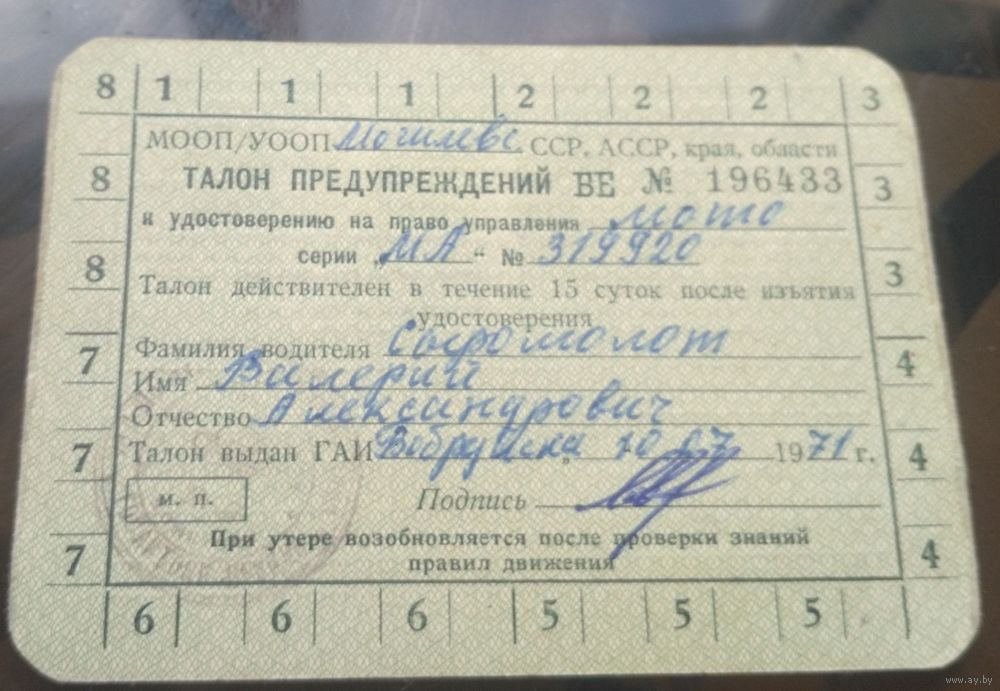 8 1 1 1 2 2 2 3
МООП/УООП Могилевс ССР, АССР, края, области
8 ТАЛОН ПРЕДУПРЕЖДЕНИЙ БЕ № 196433 3
к удостоверению на право управления мото
серии „МА“ № 319920
8 Талон действителен в течение 15 суток после изъятия 3
удостоверения
7 Фамилия водителя Сыромолот 4
Имя Валерий
Отчество Александрович
7 Талон выдан ГАИ Бобруйска „ 10 07 1971 г. 4
м. п. Подпись
При утере возобновляется после проверки знаний
7 правил движения 4
6 6 6 5 5 5
www.ay.by